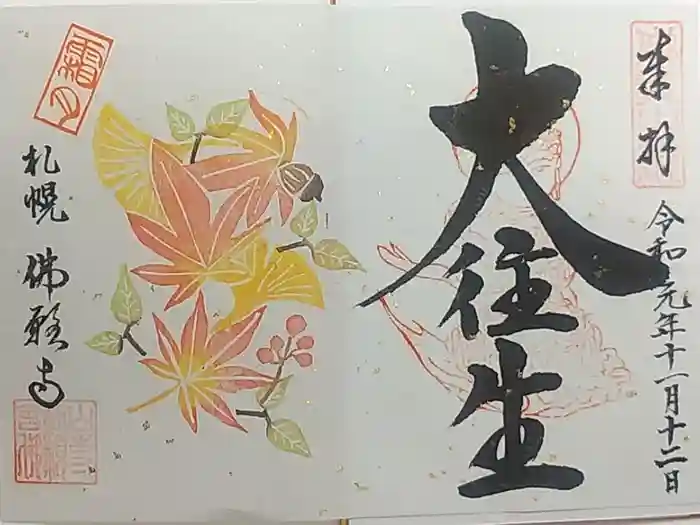 奉拝
令和元年十一月十二日
大往生
霜月
札幌 佛願寺